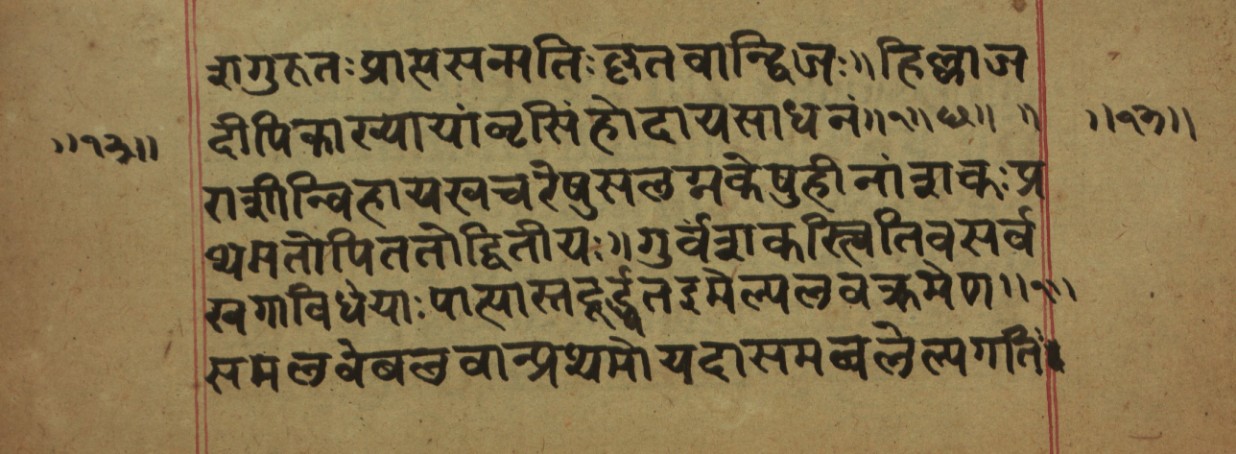 शगुरुतःप्राप्तसन्मतिःकृतवान्द्विजः॥हिल्लाज
॥१३॥ दीपिकाख्यायांनृसिंहोदायसाधनं॥१॥ ॥ ॥ ॥१३॥
राशीन्विहायखचरेषुसलग्नकेषुहीनांशकःप्र
थमतोपिततोद्वितीयः॥गुर्वंशकस्त्वितिवसर्व
खगाविधेयाःपात्यास्तदूर्द्ध्वतइमेल्पलवक्रमेण॥१॥
समलवेबलवान्प्रथमोयदासमबलेल्पगतिः